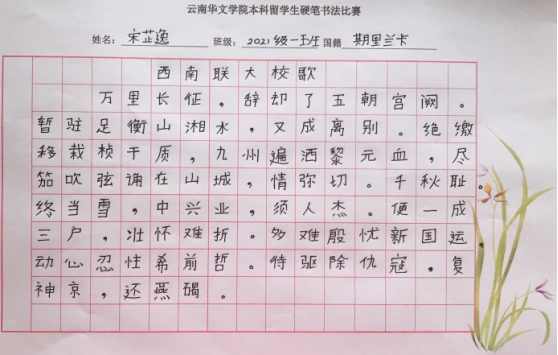 云南华文学院本科留学生硬笔书法比赛
姓名：宋芷逸 班级：2021级一班 国籍 斯里兰卡
西南联大校歌
万里长征，辞却了五朝宫阙。
暂驻足衡山湘水，又成离别。绝缴
移栽桢干质，九州遍洒黎元血，尽
笳吹弦诵在山城，情弥切。千秋耻。
终当雪，中兴业，须人杰。便一成
三户，壮怀难折。多难殷忧新国运，
动心忍性希前哲。待驱除仇寇，复
神京，还燕碣。